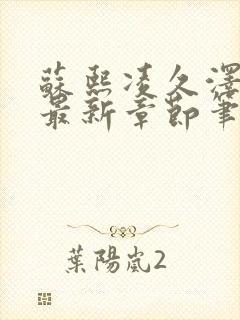 蘇熙凌久澤
最新章節筆
葉陽嵐2